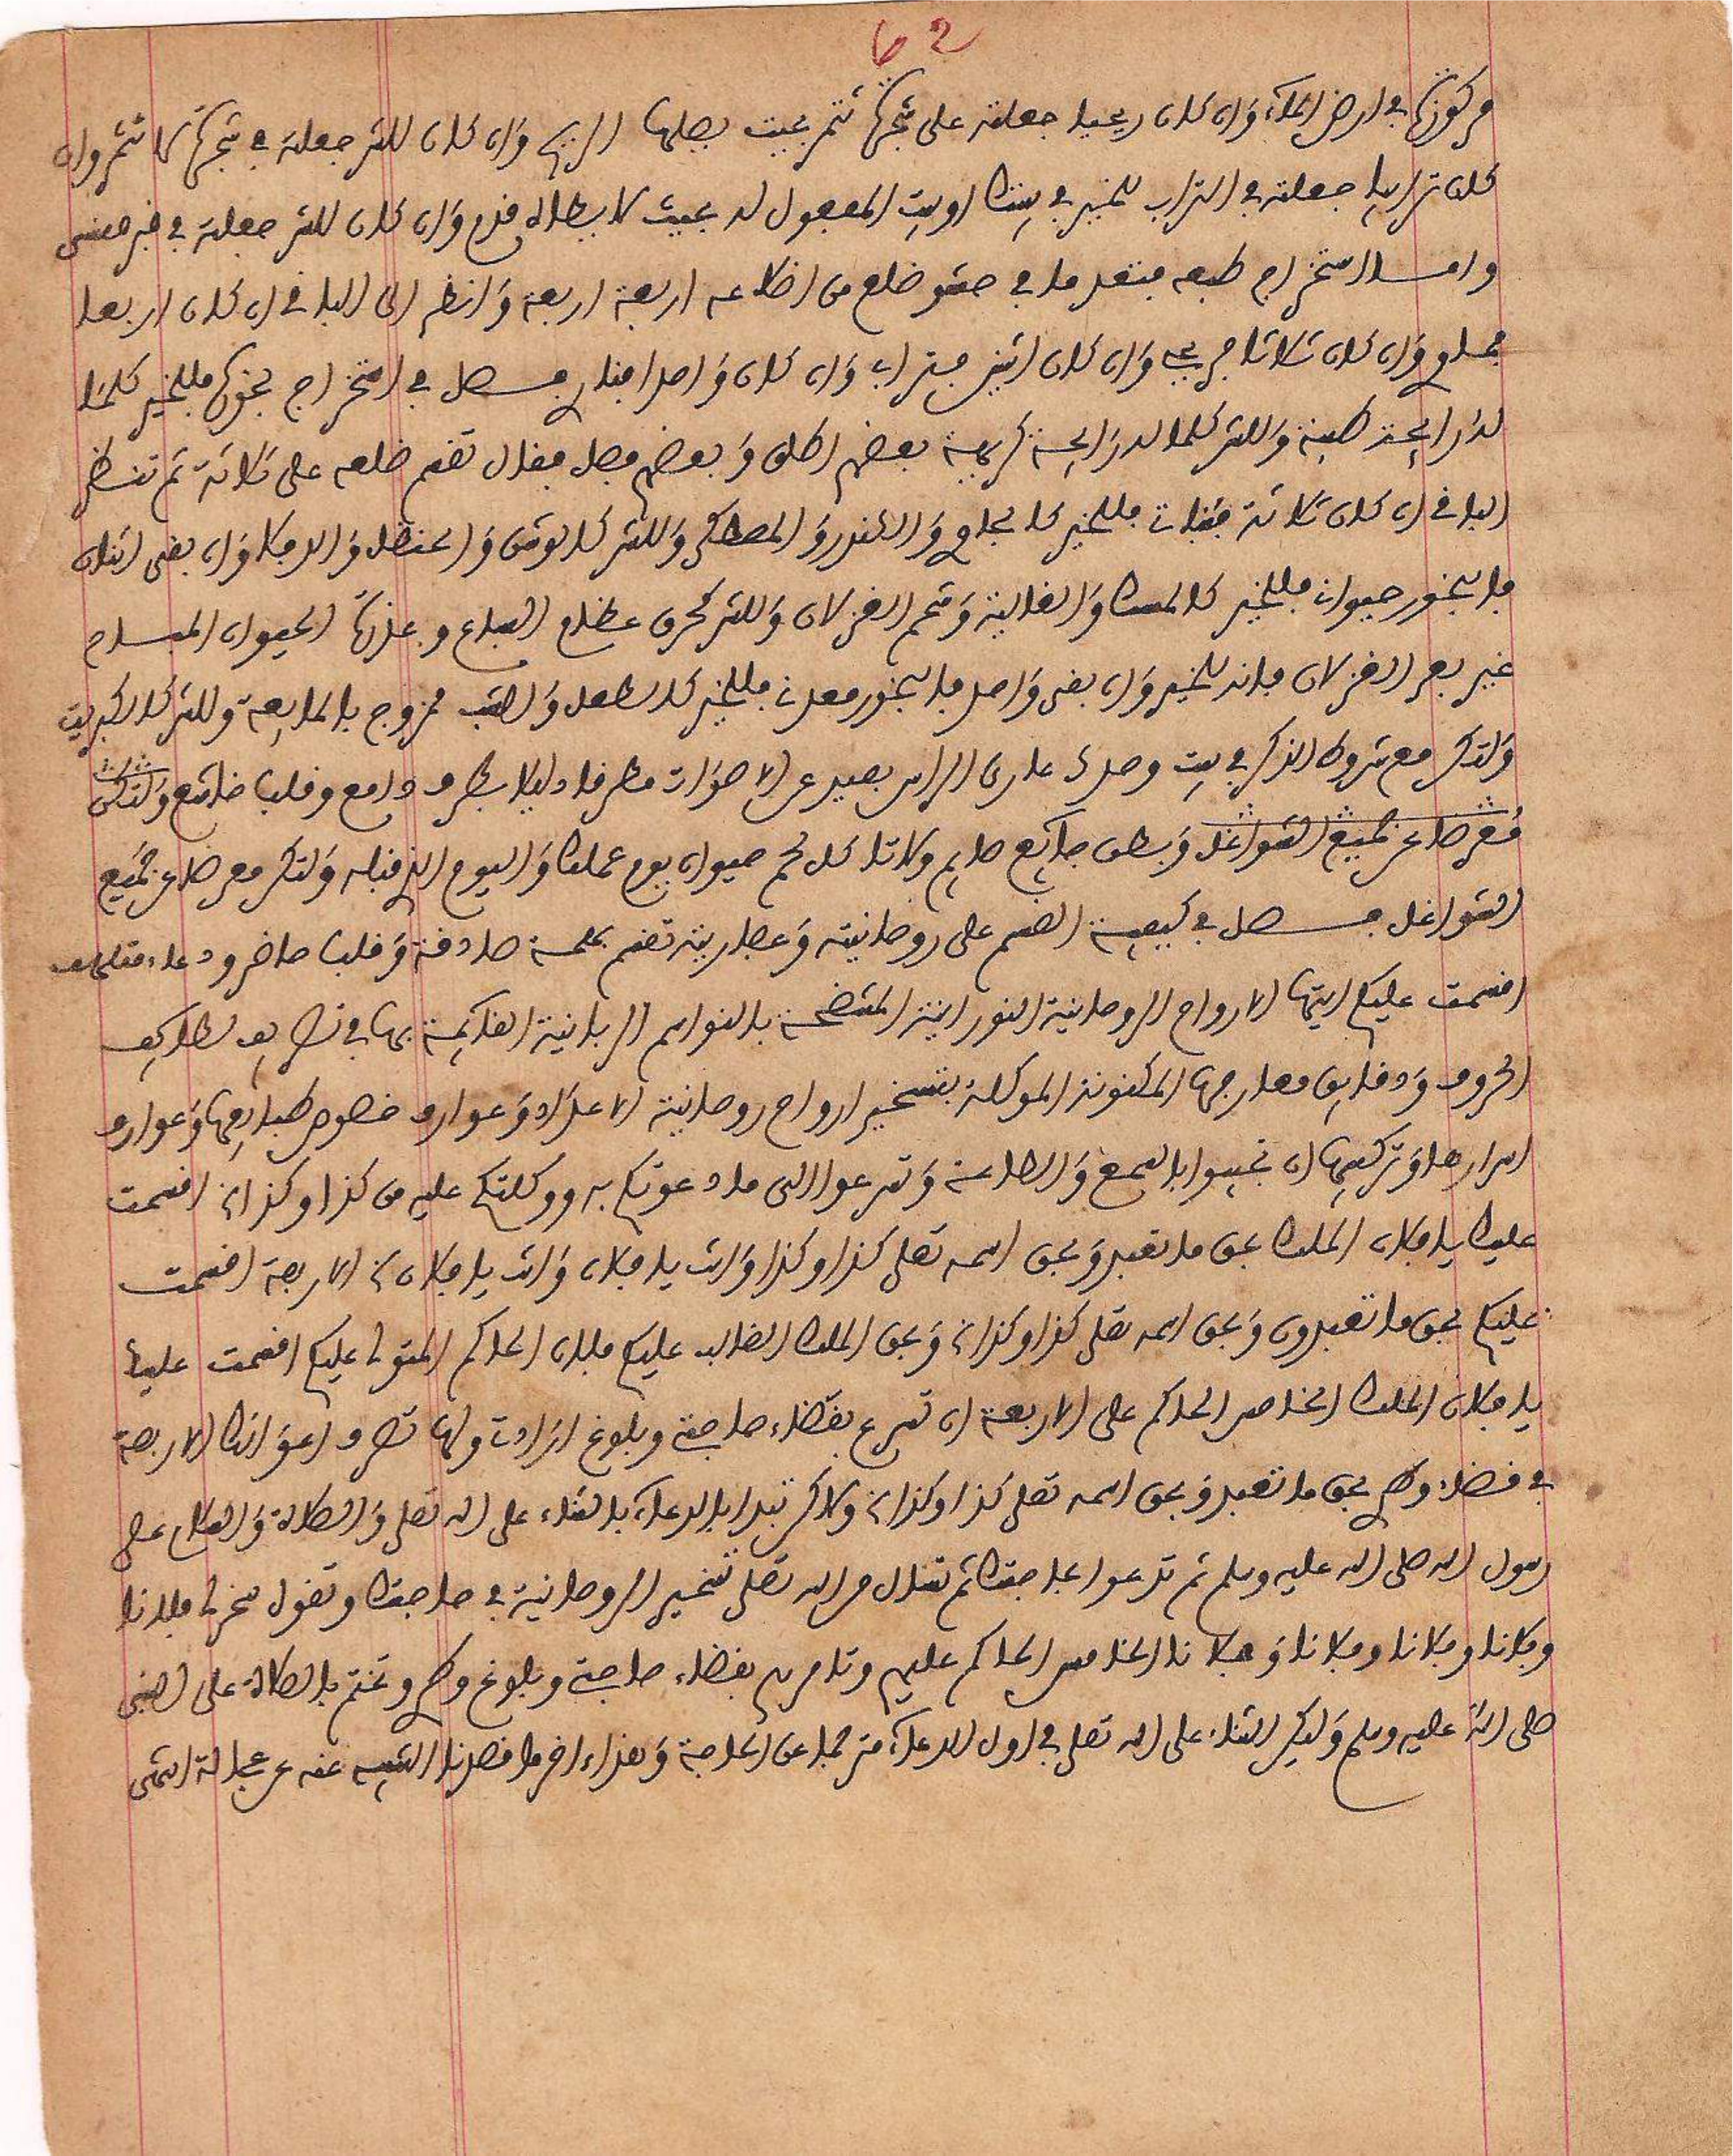 62
مركوزة في ارض الماء وان كان ريحيا جعلته على شجرة تثمر بحيث يصلها الريح وان كان للشر جعلته في شجرة لا تثمر وان
كان ترابيا جعلته في التراب للخير في بيتك او بيت المعمول له بحيث لا يطاه قدم وان كان للشر جعلته في قبر منسي
واما استخراج طبعه فتعد ما في حشو ضلع من اضلاعه اربعة اربعة وانظر الى الباقي ان كان اربعا
فماء وان كان ثلاثا فريح وان كان اثنين فتراب وان كان واحدا فنار فصل في استخراج بخوره فللخير كلما
له رايحة طيبة وللشر كلما له رايحة كريهة بعضهم اطلق وبعضهم فصل فقال تقسم ضلعه على ثلاثة ثم تنظر
الباقي ان كان ثلاثة فنبات فللخير كالجاوي و والمصطكى وللشر و والحنظل والدفلا وان بقى اثنان
فالبخور حيوان فللخير كالمسك والغالية وشحم الغزلان وللشر كحرق عظام السباع وعذرة الحيوان
غير بعر الغزلان فانه للخير وان بقى واحد فالبخور معدن فللخير و ممزوج بالمايعة وللشر كالكبريت
ولتكن مع شروط الذكر في بيت وحدك عاري الراس بعيد عن الاصوات مطرقا دليلا بطرف دامع وقلب خاشع ولتكن
معرضا عن جميع الشواغل وبطن جائع صايم ولا تاكل لحم حيوان يوم عملك واليوم الذي قبله ولتكن معرضا عن جميع
الشواغل فصل في كيفية القسم على روحانيته تقسم بهمة صادقة وقلب حاضر ودعاء
اقسمت عليكم ايتها الارواح الروحانية النورانية بالنواسم الربانية القايمة بها في تصاريف لطايف
الحروف ودقايق معارجها المكنونة الموكلة بتسخير ارواح روحانية الاعداد وعوارف خصوص طبايعها وعوارف
اسرارها وتركيبها ان تجيبوا بالسمع والطاعة وتسرعوا الى ما دعوتكم به ووكلتكم عليه من كذا وكذا اقسمت
عليك يا فلان الملك بحق ما تعبد وبحق اسمه تعلى كذا وكذا وانت يا فلان وانت يا فلان الاربعة اقسمت
عليكم بحق ما تعبدون وبحق اسمه تعلى كذا وكذا وبحق الملك الغالب عليكم فلان الحاكم المتولى عليكم اقسمت عليك
يا فلان الملك الخامس الحاكم على الاربعة ان تسرع بقضاء حاجتي وبلوغ اعوانك الاربعة
في قضاء بحق ما تعبد وبحق اسمه تعلى كذا وكذا ولاكن تبدا بالدعاء بالثناء على الله تعلى والصلاة والسلام على
رسول الله صلى الله عليه وسلم ثم تدعوا بحاجتك ثم تسال من الله تعلى تسخير الروحانية في حاجتك وتقول سخر لي فلانا
وفلانا وفلانا وفلانا وفلانا الخامس الحاكم عليهم وتامرهم بقضاء حاجتي وبلوغ وتختم بالصلاة على النبي
صلى الله عليه وسلم وليكن الثناء على الله تعلى في اول الدعاء مترجما عن الحاجة وهذا اخر ما قصدنا عنه